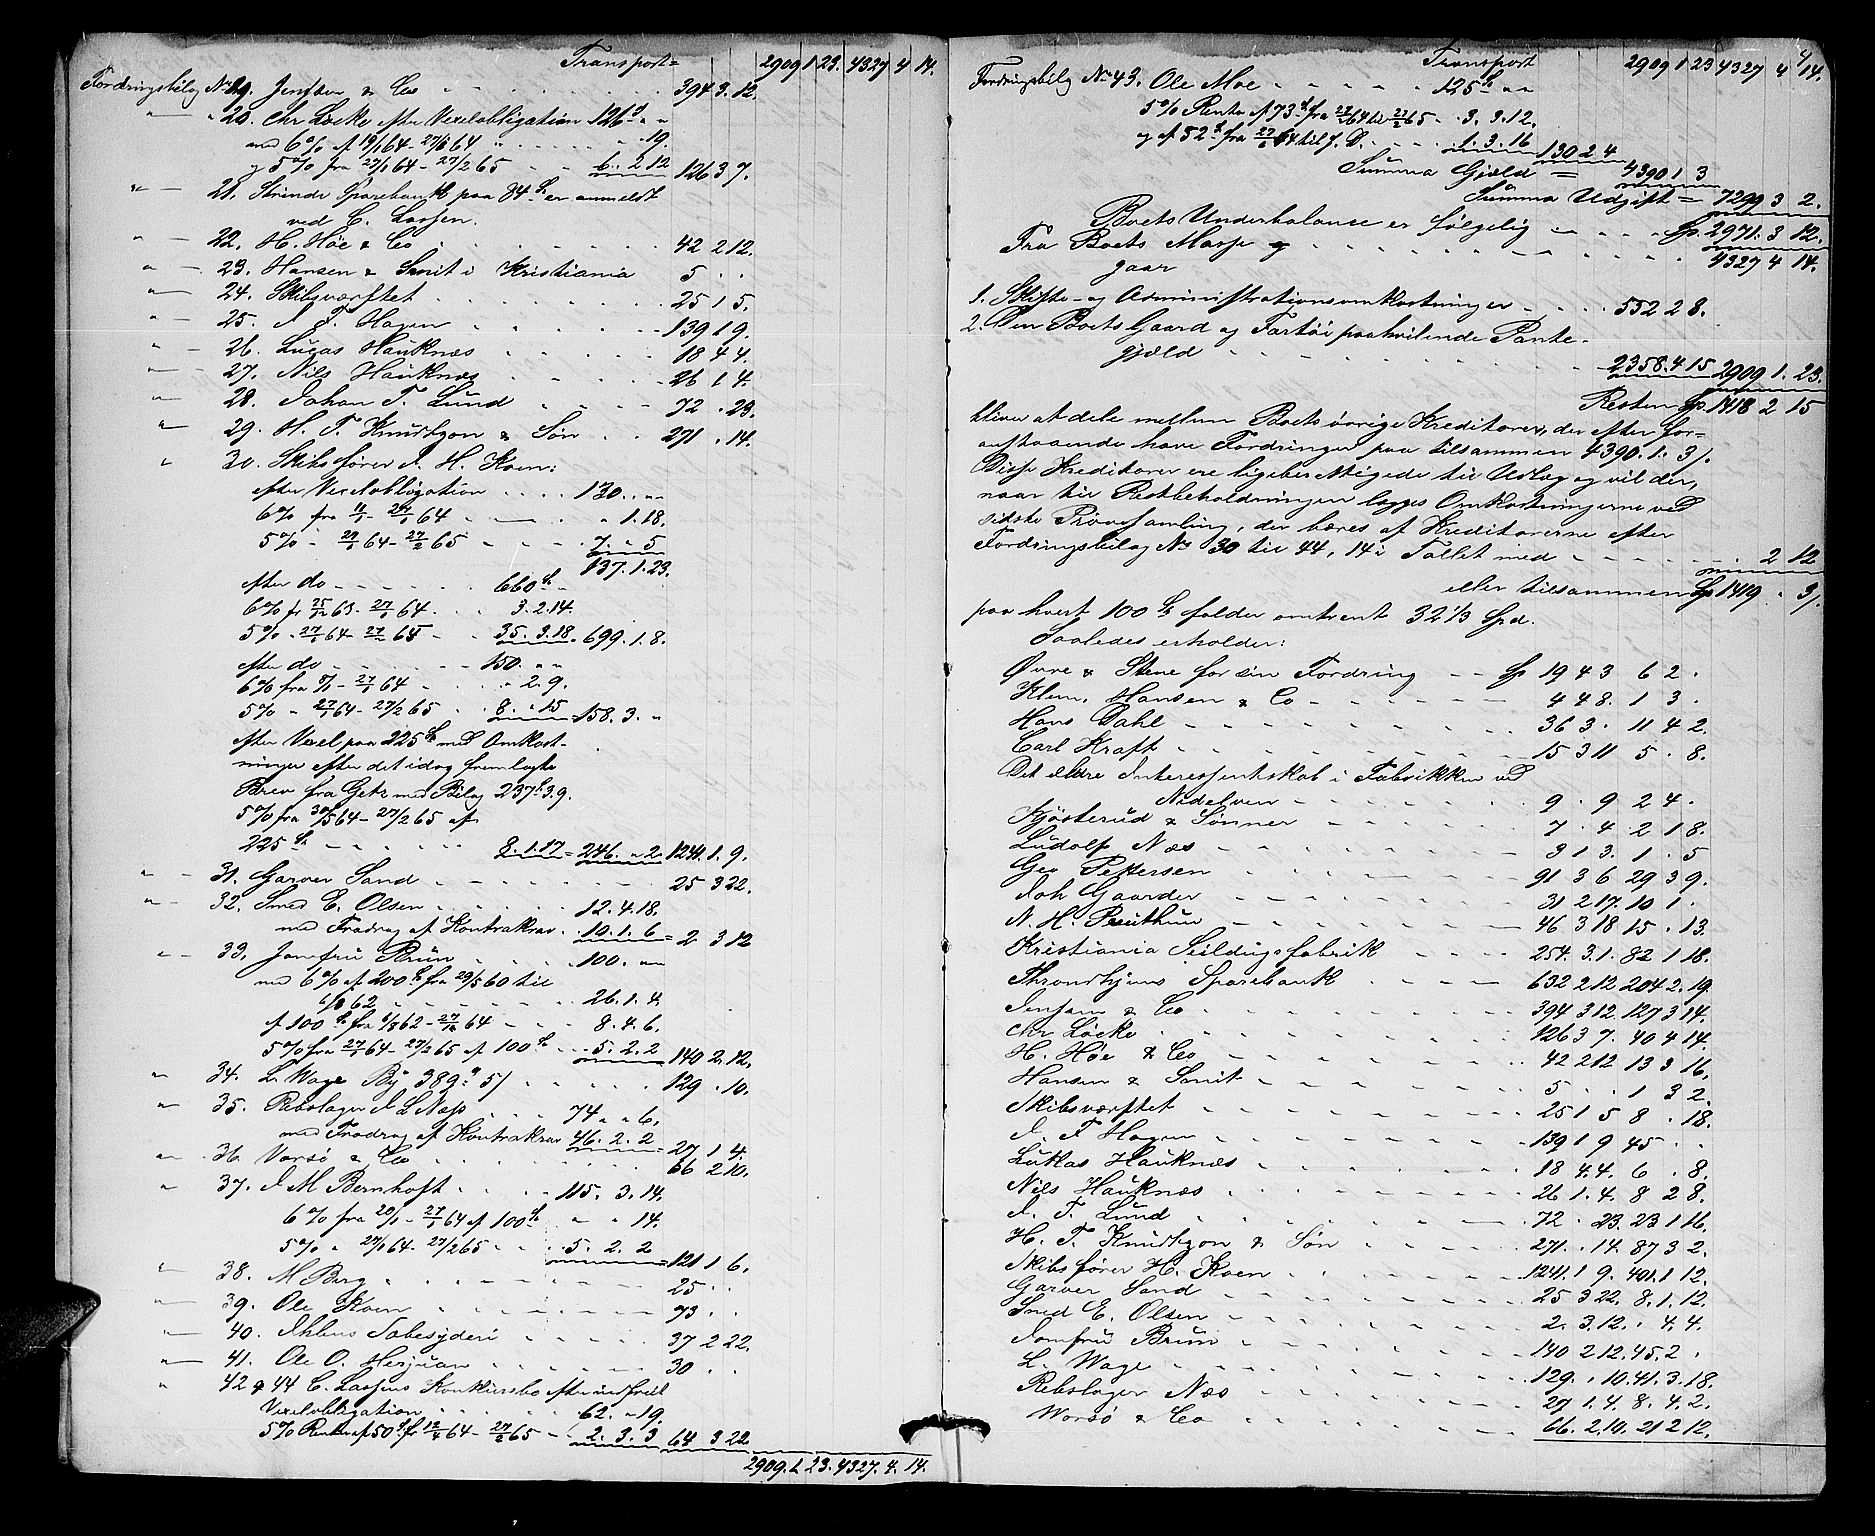 Transport = 2909 1 23. 4327 4 14.
Fordringsbilag No 19. Jenssen & Co 394 3. 12.
" 20. Chr Löcke efter Vexelobligation 126 " "
med 6% af 19/1 64 - 27/1 64 " . 19.
og 5% fra 27/1 64 - 27/2 65 6. 2 12 126 3 7.
" 21. Strinde Sparebank paa 84 er anmeldt
ved C. Lassen.
" 22. H. Höe & Co 42 2 12.
" 23. Hansen & Smit i Kristiania 5 . .
" 24. Skibsværftet 25 1 5.
" 25. J. F. Hagen 139 1 9.
" 26. Lucas Hauknæs 18 4 4.
" 27. Nils Hauknæs 26 1 4.
" 28. Johan F. Lund 72 . 23.
" 29. H. F. Knudtzon & Sön 271 . 14.
" 30. Skibsfører J. H. Koen:
efter Vexelobligation 130. " "
6% fra 11/1 - 27/1 64 " 1. 18.
5% - 27/1 64 - 27/2 65 7. " 5
137. 1. 23.
efter do 660
6% fr 25/12 63 - 27/1 64 3. 2. 14.
5% - 27/1 64 - 27/2 65 35. 3. 18. 699. 1. 8.
efter do 150. " "
6% fra 9/1 - 27/1 64 " 2. 9.
5% " 27/1 64 - 27/2 65 8. " 15 158. 3. "
efter Vexel paa 225 med Omkost-
ninger efter det idag fremlagte
Brev fra Getz med Bilag 237. 3. 9.
5% fra 30/5 64 - 27/2 65 af
225 8. 1. 17 = 246. " 2. 1241. 1. 9.
" 31. Garver Sand 25 3 22.
" 32. Smed E. Olsen 12. 4. 18.
med Fradrag af Kontrakrav 10. 1. 6 = 2 3 12
" 33. Jomfru Brun 100. " "
med 6% af 200 fra 29/5 60 til
6/8 62 26. 1. 4.
af 100 fra 6/8 62 - 27/1 64 8. 4. 6.
5% fra 27/1 64 - 27/2 65 af 100 5. 2. 2 140 2. 12.
" 34. L. Wage 129 . 10.
" 35. Rebslager J L Næss 74 " 6.
med Fradrag af Kontrakrav 46. 2. 2 27 1 4.
" 36. Vorsö & Co 66 2 10.
" 37. J M Bernhoft 115. 3. 14.
6% fra 20/1 - 27/1 64 af 100 " " 14.
5% " 27/1 64 - 27/2 65 5. 2. 2 121 1 6.
" 38. M Berg 25 . .
" 39. Ole Koen 93 . .
" 40. Ihlens Sæbesyderi 37 2 22.
" 41. Ole O. 30 . .
" 42 & 44 C. Lassens Konkursbo efter
Vexelobligation 62. " 19.
5% Renter af 50 fr 12/4 64 - 27/2 65 2. 3. 3 64 3 22.
2909. 1 23. 4327. 4. 14.
4
Transport 2909 1 23 4327 4 14.
Fordringsbilag No 43. Ole Moe 125 " "
5% Rente af 73 fra 27/1 64 til 27/2 65 3. 3. 12.
og af 52 fra 27/1 64 til f. D. 1. 3. 16 130 2 4
Summa Gjæld = 4390 1 3
Summa Udgift = 7299 3 2.
Boets Underbalance er følgelig Sp. 2971. 3 12.
Fra Boets Masse 4327 4 14.
gaar
1. Skifte- og Administrationsomkostninger 552 2 8.
2. Den Boets Gaard og Fartöi paahvilende Pante-
gjæld 2358. 4 15 2909 1. 23.
Resten Sp. 1418 2 15
bliver at dele mellem Boets övrige Kreditorer, der efter for-
anstaaende have Fordringer paa tilsammen 4390. 1. 3/.
Disse Kreditorer ere ligeberettigede til Udlæg og vil der,
naar til Restbeholdningen lægges Omkostningerne ved
sidste Prøvesamling, der bæres af Kreditorerne efter
Fordringsbilag No 30 til 44, 14 i Tallet med 2 12
eller tilsammen Sp 1419 . 3/.
paa hvert 100 falder omtrent 32 1/3 Spd.
Saaledes erholder:
Øvre & Stene for sin Fordring Sp 19 4 3 6 2 .
Klem. Hansen & Co 4 4 8. 1 3 .
Hans Dahl 36 3 . 11 4 2.
Carl Kraft 15 3 11 5 . 8.
Det ældre Interessentskab i Fabrikken ved
Nidelven 9 . 9 2 4 .
Kjösterud & Sønner 7 . 4 2 1 8.
Ludolf Næs 3 1 3. 1 . 5
Geo Pettersen 91 3 6 29 3 9.
Joh Gaarder 31 2 17. 10 1 .
N. H. Bruthun 46 3 18 15 . 13.
Kristiania Seildugsfabrik 254. 3. 1. 82 1 18.
Throndhjems Sparebank 632 2 12 204 2. 19.
Jenssen & Co 394 3 12. 127 3 14.
Chr Löcke 126 3 7. 40 4 14.
H. Höe & Co 42 2 12 13 3 16.
Hansen & Smit 5 . . 1 3 2.
Skibsværftet 25 1 5 8 . 18.
J. F Hagen 139 1 9 45 . .
Lukas Hauknæs 18 4. 4. 6 . 8.
Nils Hauknæs 26 1. 4. 8 2 8.
J. F. Lund 72 . 23. 23 1 16.
H. F. Knudtzon & Sön 271. . 14. 87 3 2.
Skibsfører H. Koen 1241. 1 9. 401. 1 12.
Garver Sand 25 3 22. 8. 1. 12.
Smed E. Olsen 2. 3. 12. . 4. 4.
Jomfru Brun 140 2 12. 45. 2 .
L. Wage 129. . 10. 41. 3. 18.
Rebslager Næs 27 1. 4. 8. 4. 2.
Worsö & Co 66. 2. 10. 21 2 12.